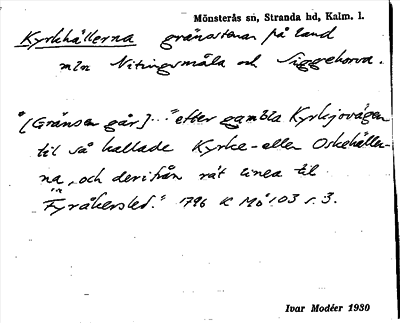 Mönsterås sn, Stranda hd, Kalm. l.
Kyrkhällerna gränsstenar på land
mln Nitningsmåla och Siggehorva.
"[Gränsen går]..." efter gambla Kyrkjovägen
til så kallade Kyrke- eller Oskehäller-
na, och derifrån rät linea til
"Fyråkersled." 1796 K Mö 103 s. 3.
Ivar Modéer 1930